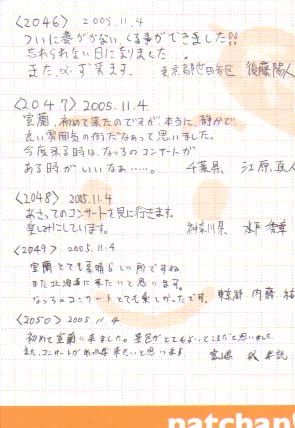 〈2046〉 2005.11.4
ついに夢がかない、くる事ができました!!
忘れられない日になりました。
また必ず来ます。 東京都世田谷区 後藤陽人
〈2047〉 2005.11.4.
室蘭、初めて来たのですが、本当に静かで
良い雰囲気の街だなぁって思いました。
今度来る時は、なっちのコンサートが
ある時がいいなぁ……。 千葉県 江原直人
〈2048〉 2005.11.4
あさってのコンサートを見に行きます。
楽しみにしています。 神奈川県 水戸
〈2049〉 2005.11.4
室蘭とても素晴らしい所ですね
また北海道に来たいと思います。
なっちのコンサートとても楽しかったです。 東京都 内藤
〈2050〉 2005.11.4
初めて室蘭に来ました。景色がとてもよいところだと思いました
また、コンサートがあれば来たいと思います。
natchan!